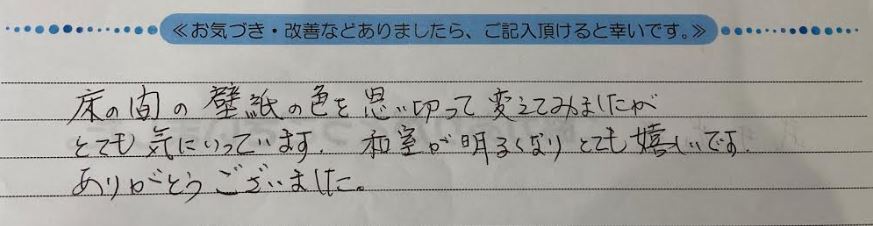 ≪お気づき・改善などありましたら、ご記入頂けると幸いです。≫
床の間の壁紙の色を思い切って変えてみましたが
とても気にいっています。和室が明るくなりとても嬉しいです。
ありがとうございました。